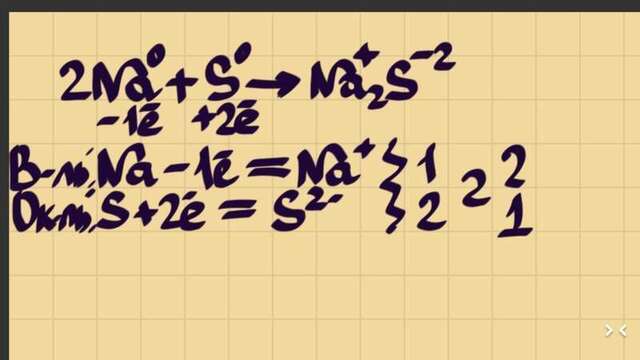 2Na⁰ + S⁰ → Na₂⁺S⁻²
-1ē +2ē
В-ль: Na - 1ē = Na⁺ } 1 2 2
Ок-ль: S + 2ē = S²⁻ } 2 1